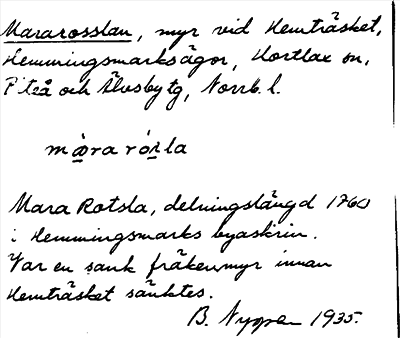 Mararosslan, myr vid Hemträsket,
Hemmingsmarksägor, Hortlax sn,
Piteå och Älvsby tg, Norrb. l.
mara råsla
Mara Rotsla, delningslängd 1760
i Hemmingsmarks byaskrin.
Var en sank fräkenmyr innan
Hemträsket sänktes.
B. Nyman 1935.